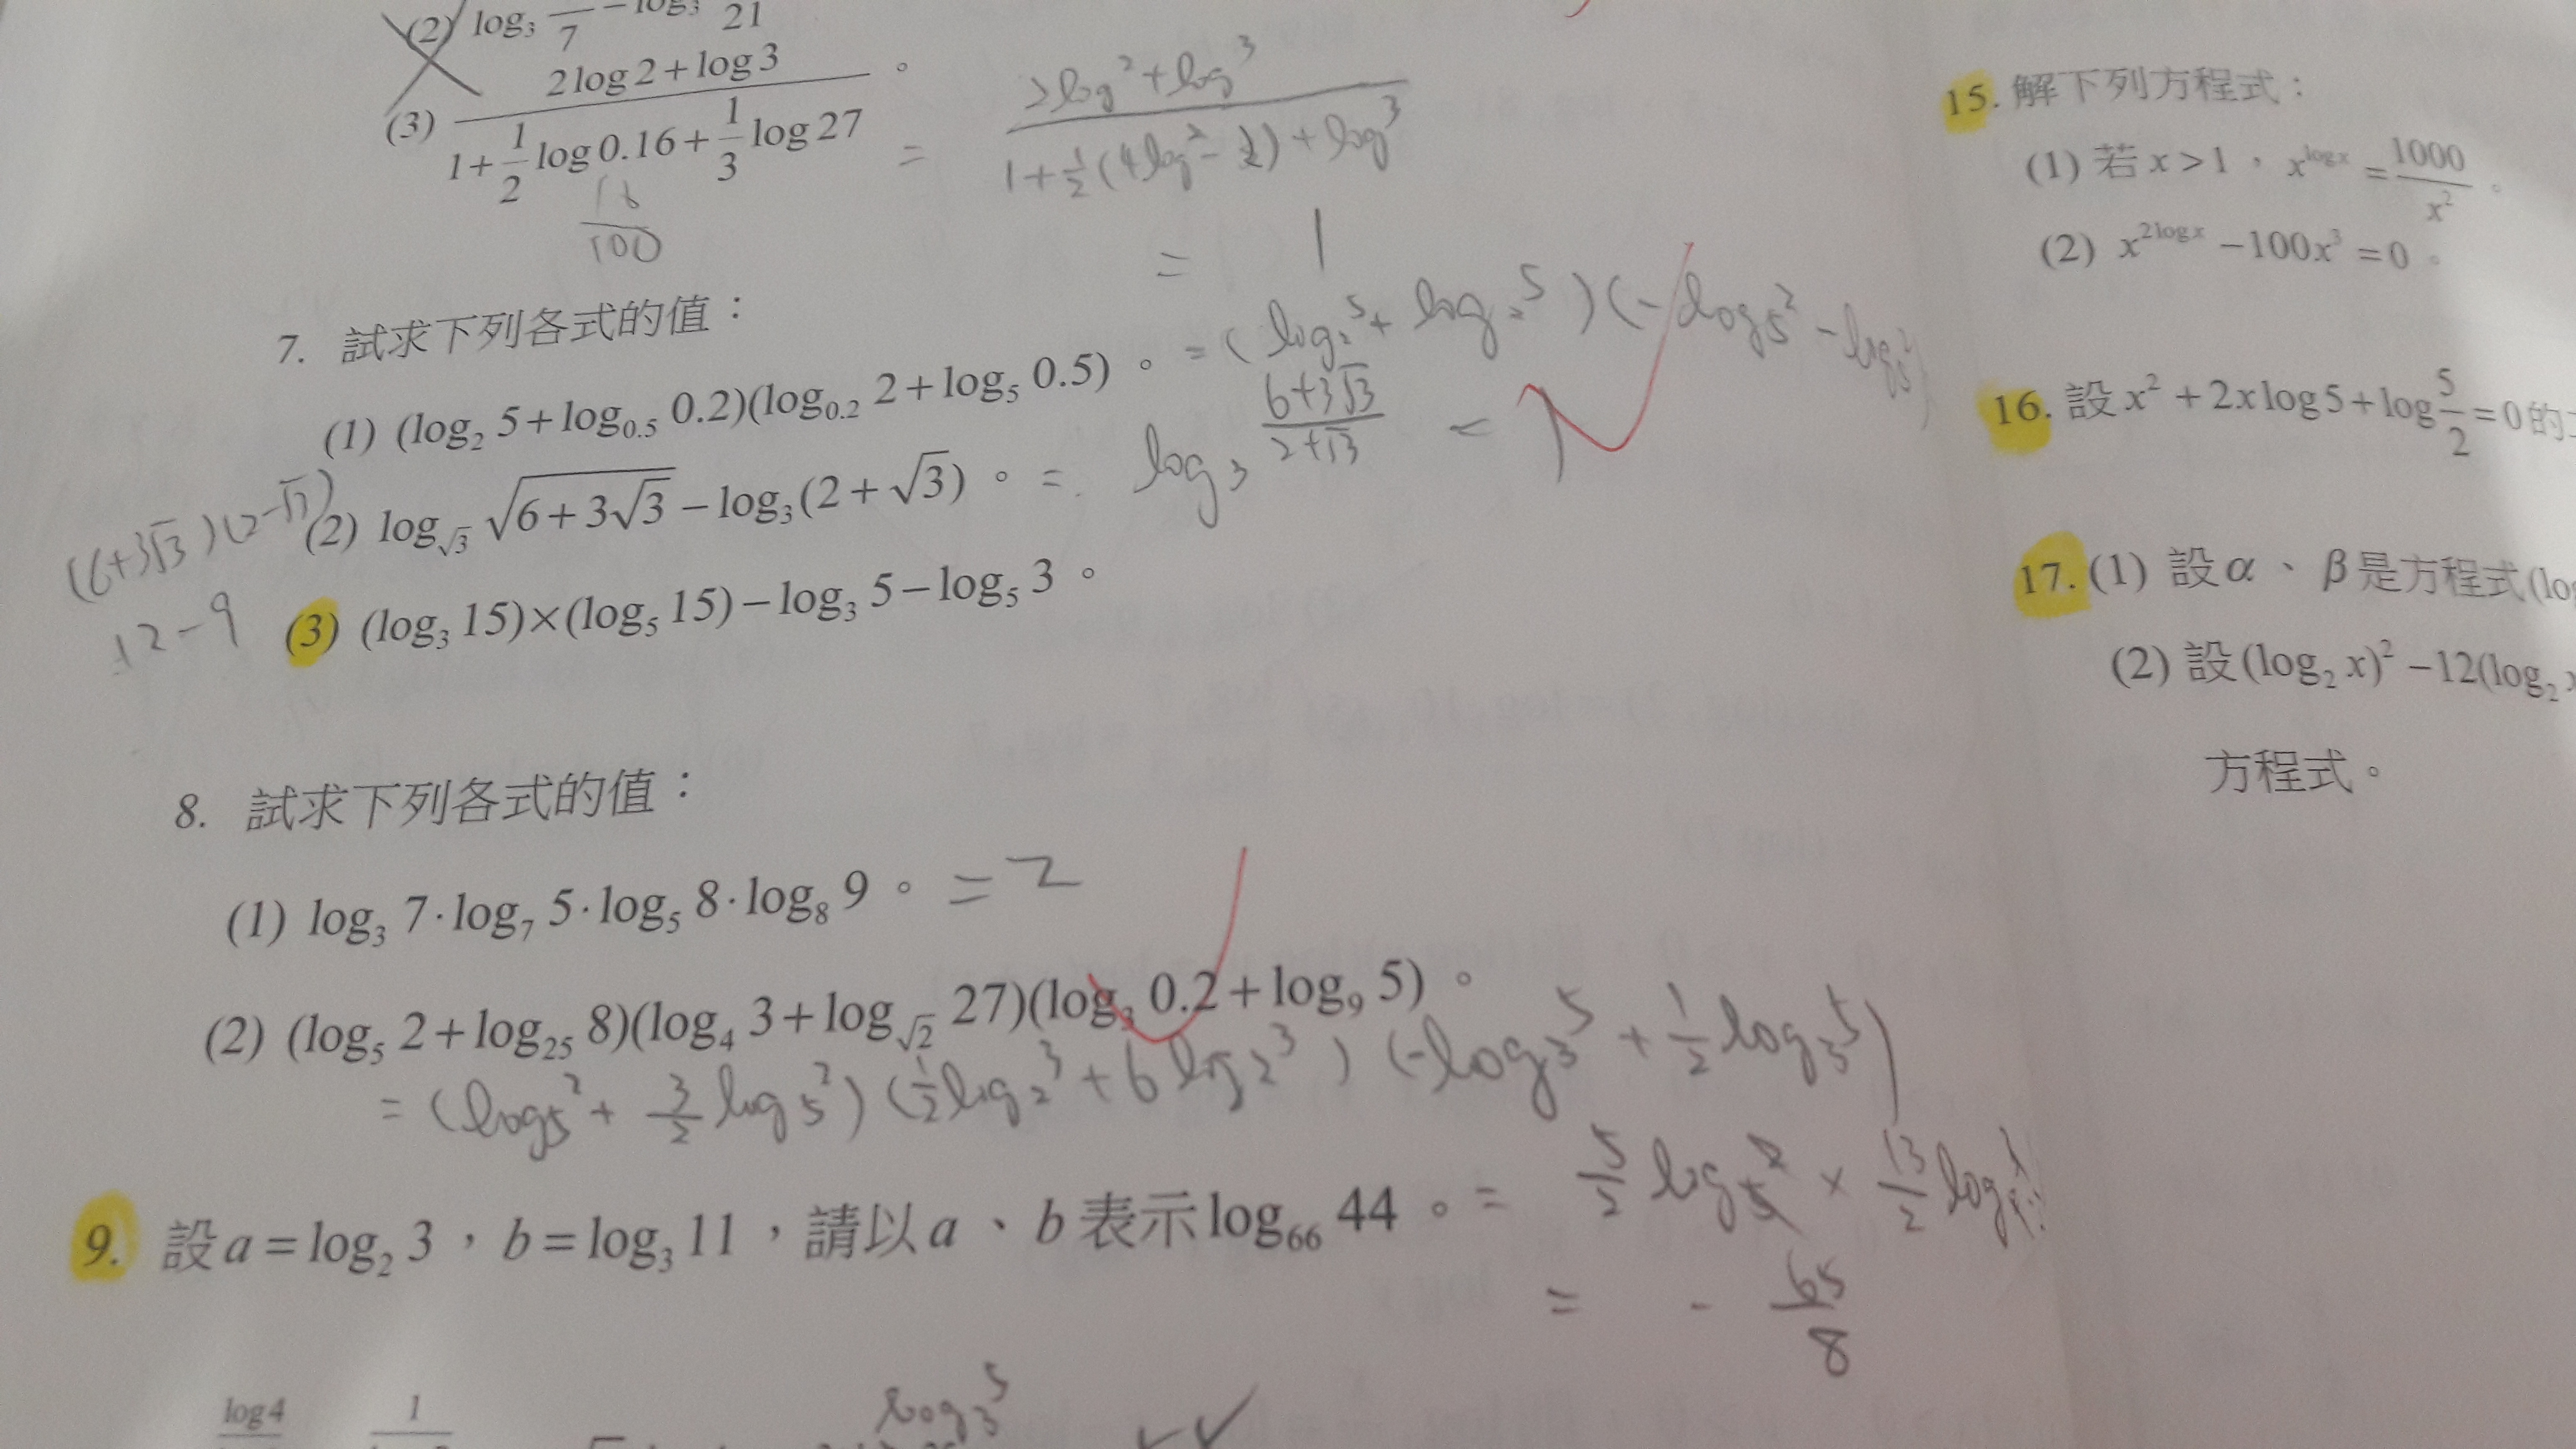 (2) log₃ —/7 − log₃ 21
(3) (2log2+log3)/(1+1/2 log0.16+1/3 log27) 。
= (2log2+log3)/(1+1/2(4log2−2)+log3)
16/100
= 1
7. 試求下列各式的值：
(1) (log₂ 5+log₀.₅ 0.2)(log₀.₂ 2+log₅ 0.5) 。 = (log₂5+log₂5)(−log₅2−log₅2)
(2) log_√3 √(6+3√3) −log₃(2+√3) 。 = log₃ (6+3√3)/(2+√3) = 1
(6+3√3)(2−√3)
12−9
(3) (log₃ 15)×(log₅ 15)−log₃ 5−log₅ 3 。
8. 試求下列各式的值：
(1) log₃ 7·log₇ 5·log₅ 8·log₈ 9 。 = 2
(2) (log₅ 2+log₂₅ 8)(log₄ 3+log_√2 27)(log₃ 0.2+log₉ 5) 。
= (log₅2+3/2 log₅2)(1/2 log₂3+6log₂3)(−log₃5+1/2 log₃5)
= 5/2 log₅2 × 13/2 log
= −65/8
9. 設a=log₂ 3，b=log₃ 11，請以a、b表示log₆₆ 44 。
log4 1
log₃5
15. 解下列方程式：
(1) 若x>1，x^(logx)=1000/x² 。
(2) x^(2logx)−100x³=0 。
16. 設x²+2xlog5+log 5/2=0的
17. (1) 設α、β是方程式(lo
(2) 設(log₂ x)²−12(log₂
方程式。